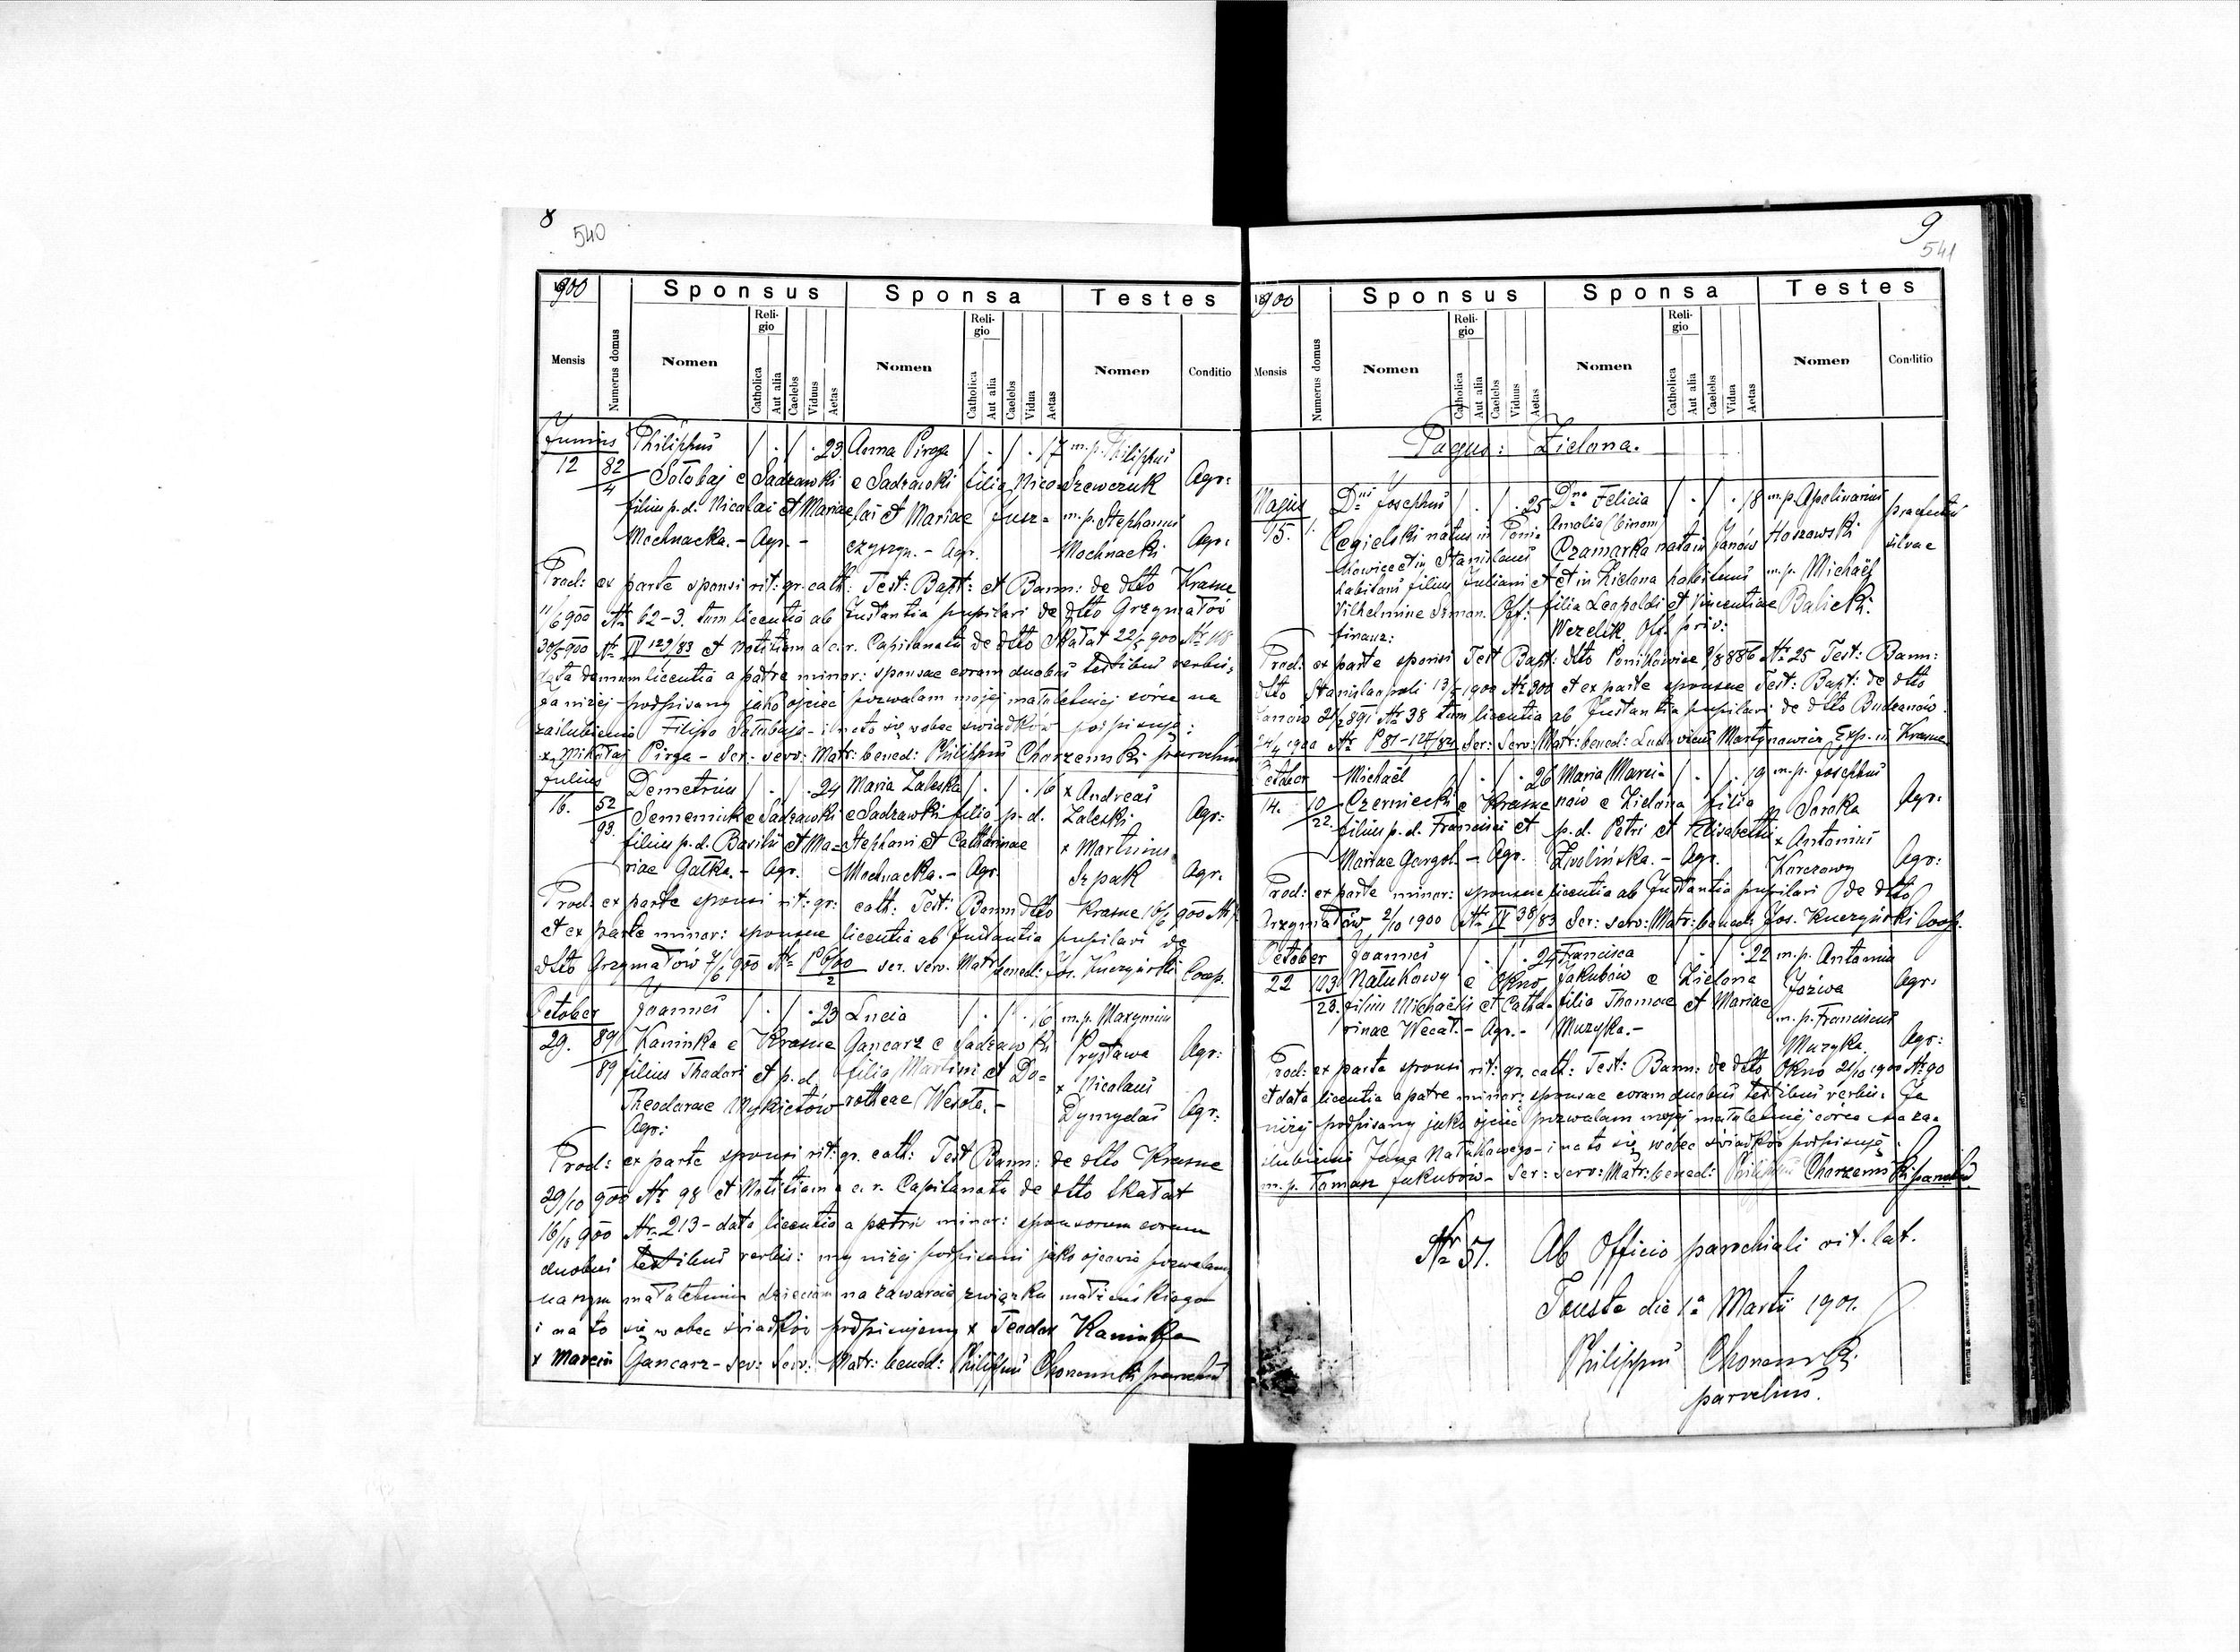 8
540
1900 Sponsus Sponsa Testes
Mensis Numerus domus Nomen Religio Catholica Aut alia Caelebs Viduus Aetas Nomen Religio Catholica Aut alia Caelebs Vidua Aetas Nomen Conditio
Junius Philippus / . / . 23 Anna Pirga / . / . 17 m.p. Philippus
12 82/4 Sołobaj e Sadzawki e Sadzawki filia Nico= Szewczuk Agr:
filius p.d. Nicolai et Mariae lai et Mariae Jusz= m.p. Stephanus
Mochnacka. - Agr. - czyszyn. - Agr. Mochnacki Agr:
Prod: ex parte sponsi rit: gr. cath: Test: Bapt: et Bann: de dtto Krasne
11/6 900 Nr 62-3. tum licentia ab Instantia pupilari de dtto Grzymałów
30/5 900 Nr IV 129/83 et Notitiam a c.r. Capitanatu de dtto Skałat 22/5 900 Nr 118
data demum licentia a patre minor: sponsae coram duobus testibus verbis:
Ja niżej podpisany jako ojciec pozwalam mojej małoletniej córce na
zaślubienie Filipa Sołobaja - i na to się wobec świadków podpisuję:
x Mikołaj Pirga - Ser. serv: Matr: bened: Philippus Chorzemski parochus
Julius Demetrius / . / . 24 Maria Zaleska / . / . 16 x Andreas
16. 52/93. Semeniuk e Sadzawki e Sadzawki filia p.d. Zaleski Agr:
filius p.d. Basilii et Ma= Stephani et Catharinae x Martinus
riae Gałka. - Agr. Mochnacka. - Agr. Szpak Agr.
Prod: ex parte sponsi rit: gr: cath: Test: Bann dtto Krasne 16/7 900 Nr
et ex parte minor: sponsae licentia ab Instantia pupilari de
dtto Grzymałów 7/6 900 Nr P 6/00 2 ser. serv. Matr bened: Jos. Kuczyński Coop.
October Joannes / . / . 23 Lucia / . / . 16 m.p. Maxymius
29. 89/89 Kaminka e Krasne Gancarz e Sadzawki Prystawa Agr:
filius Thadori et p.d. filia Martini et Do= x Nicolaus
Theodorae Mykietów rotheae Wesoła. - Dymydas Agr:
Agr:
Prod: ex parte sponsi rit: gr. cath: Test Bann: de dtto Krasne
29/10 900 Nr 98 et Notitiam a c.r. Capitanatu de dtto Skałat
16/10 900 Nr 213 - data licentia a patris minor: sponsorum coram
duobus testibus verbis: my niżej podpisani jako ojcowie pozwalamy
naszym małoletnim dzieciom na zawarcie związku małżeńskiego
i na to się wobec świadków podpisujemy x Teodor Kaminka
x Marcin Gancarz - Ser: serv: Matr: bened: Philippus Chorzemski parochus
9
541
1900 Sponsus Sponsa Testes
Mensis Numerus domus Nomen Religio Catholica Aut alia Caelebs Viduus Aetas Nomen Religio Catholica Aut alia Caelebs Vidua Aetas Nomen Conditio
Pagus: Zielona.
Majus Dnus Josephus / . / . 25 Dna Felicia / . / . 18 m.p. Apolinarius praefectus
15. 1. Cegielski natus in Poni= Amalia (binom) Hoszowski silvae
kowice et in Stanislaus Czamarka nata in Janów
habitans filius Juliani et et in Zielona habitans m.p. Michaël
Vilhelmine Szman. Off: filia Leopoldi et Vincentiae Balicki.
finanz: Wezelik Off. priv:
Prod: ex parte sponsi Test Bapt: dtto Ponikowice 9/8 886 Nr 25 Test: Bann:
dtto Stanislaopoli 13/5 1900 Nr 300 et ex parte sponsae Test: Bapt: de dtto
Janów 21/2 891 Nr 38 tum licentia ab Instantia pupilari de dtto Budzanów
24/4 1900 Nr P 81-127/84 Ser: Serv: Matr: bened: Ludovicus Martynowicz Exp. in Krasne
October Michaël / . / . 26 Maria Marci= / . / . 19 m.p. Josephus
14. 10/22 Czerniecki e Krasne nów e Zielona filia Soroka Agr:
filius p.d. Francisci et p.d. Petri et Elisabethae x Antonius
Mariae Gargol. - Agr. Zwolińska. - Agr. Korczowy Agr:
Prod: ex parte minor: sponsae licentia ab Instantia pupilari de dtto
Grzymałów 2/10 1900 Nr IV 38/83 Ser: serv: Matr: bened: Jos. Kuczyński Coop.
October Joannes / . / . 24 Francisca / . / . 22 m.p. Antonius
22 103/23. Natukowy e Okno Jakubów e Zielona Józwa Agr:
filius Michaëlis et Catha= filia Thomae et Mariae m.p. Franciscus
rinae Wecał. - Agr. - Muzyka. - Muzyka Agr:
Prod: ex parte sponsi rit: gr. cath: Test: Bann: de dtto Okno 21/10 1900 Nr 90
et data licentia a patre minor: sponsae coram duobus testibus verbis: Ja
niżej podpisany jako ojciec pozwalam mojej małoletniej córce na za=
ślubienie Jana Natukowego - i na to się wobec świadków podpisuję:
m.p. Tomasz Jakubów - Ser: serv: Matr: bened: Philippus Chorzemski parochus
Nr 51. Ab Officio parochiali rit. lat.
Touste die 1a Martii 1901.
Philippus Chorzemski
parochus.